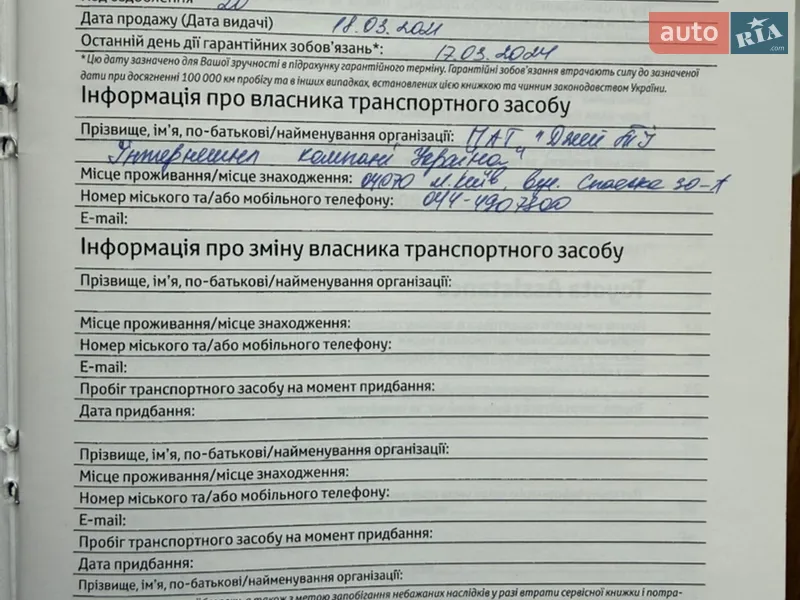 20
Дата продажу (Дата видачі) 18.03.2021
Останній день дії гарантійних зобов'язань*: 17.03.2024
auto RIA .com
*Цю дату зазначено для Вашої зручності в підрахунку гарантійного терміну. Гарантійні зобов'язання втрачають силу до зазначеної
дати при досягненні 100 000 км пробігу та в інших випадках, встановлених цією книжкою та чинним законодавством України.
Інформація про власника транспортного засобу
Прізвище, ім'я, по-батькові/найменування організації: ПАТ "Джей Ті
Інтернешнл компані Україна"
Місце проживання/місце знаходження: 04070 м. Київ, вул. Спаська 30-А
Номер міського та/або мобільного телефону: 044-4907300
E-mail:
Інформація про зміну власника транспортного засобу
Прізвище, ім'я, по-батькові/найменування організації:
Місце проживання/місце знаходження:
Номер міського та/або мобільного телефону:
E-mail:
Пробіг транспортного засобу на момент придбання:
Дата придбання:
Прізвище, ім'я, по-батькові/найменування організації:
Місце проживання/місце знаходження:
Номер міського та/або мобільного телефону:
E-mail:
Пробіг транспортного засобу на момент придбання:
Дата придбання:
Прізвище, ім'я, по-батькові/найменування організації:
також з метою запобігання небажаних наслідків у разі втрати сервісної книжки і потра-